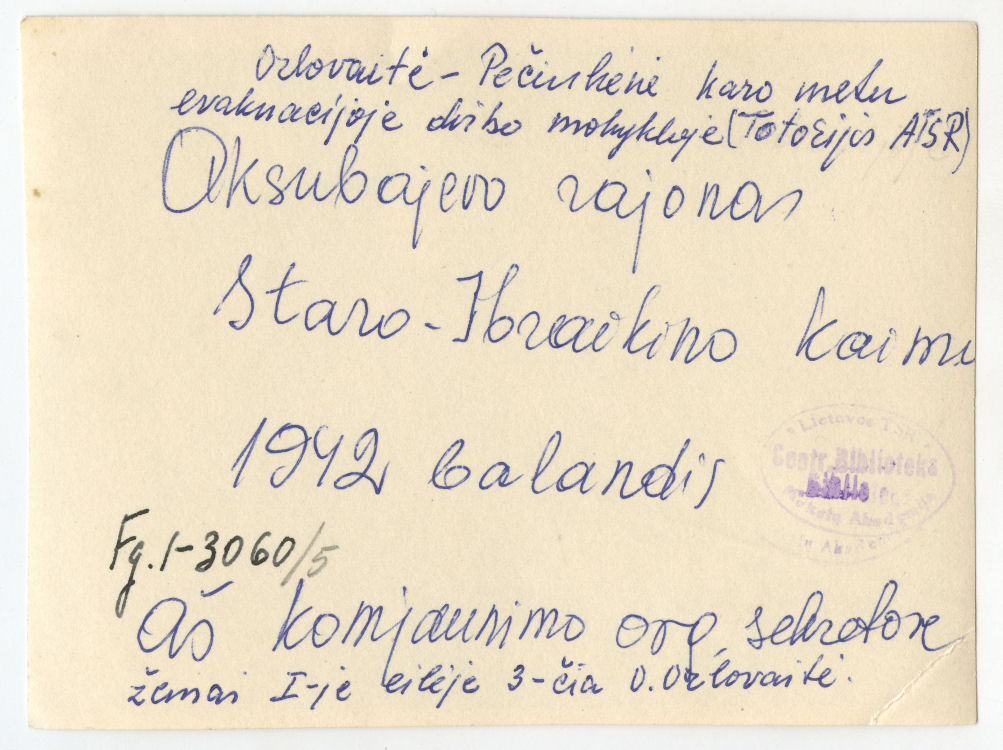 Orlovaitė - Pečiukėnė karo metu
evakuacijoje dirbo mokykloje (Totorijos ATSR)
Aksubajevo rajonas
Staro-Ibraikino kaimu
1942 balandis
Lietuvos TSR
Centr. Biblioteka
Mokslų Akademija
Fg. 1-3060/5
Aš komjaunimo org. sekretorė
žemai I-je eilėje 3-čia O. Orlovaitė.